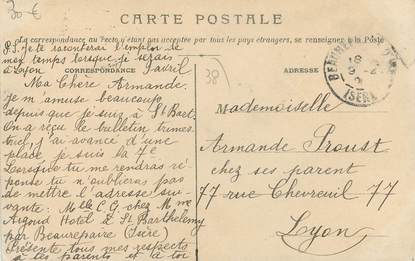 30€
CARTE POSTALE
La correspondance au recto n'étant pas acceptée par tous les pays étrangers, se renseigner à la Poste
P.S. Je te raconterai l'emploi de
mon temps lorsque je serais
à Lyon
CORRESPONDANCE
avril
Ma Chère Armande.
Je m'amuse beaucoup
depuis que je suis à St Bart.
On a reçu le bulletin trimes-
triel, j'ai avancé d'une
place je suis la 7e
Lorsque tu me rendras ré-
ponse tu n'oublieras pas
de mettre l'adresse sui-
vante. Melle C. G. chez Mme
Argoud Hotel à St Barthelemy
par Beaurepaire (Isère)
Présente tous mes respects
à tes parents et à toi
38
ADRESSE
BEAUREPAIRE
ISÈRE
Mademoiselle
Armande Proust
chez ses parent
77 rue Chevreuil 77
Lyon